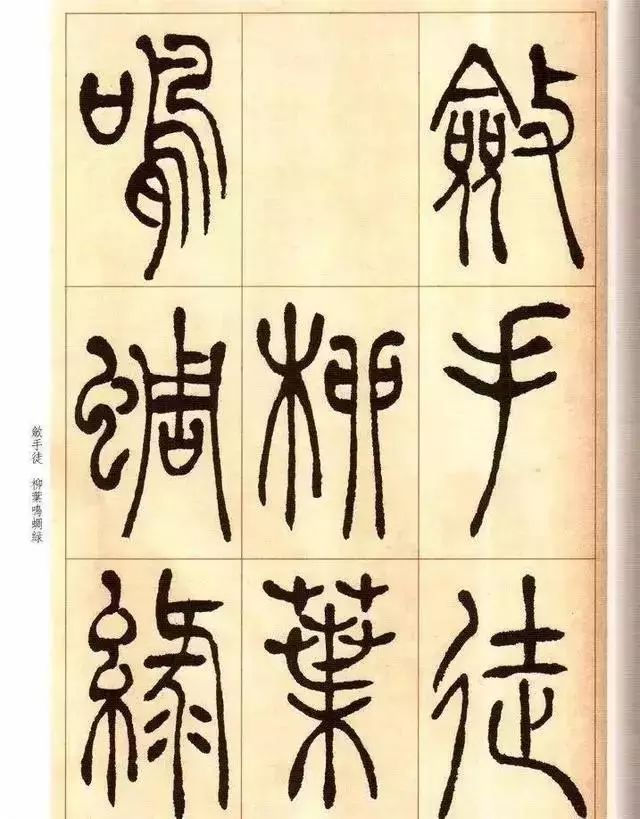 斂手徒
柳葉
鳴蜩綠
斂手徒　柳葉鳴蜩綠